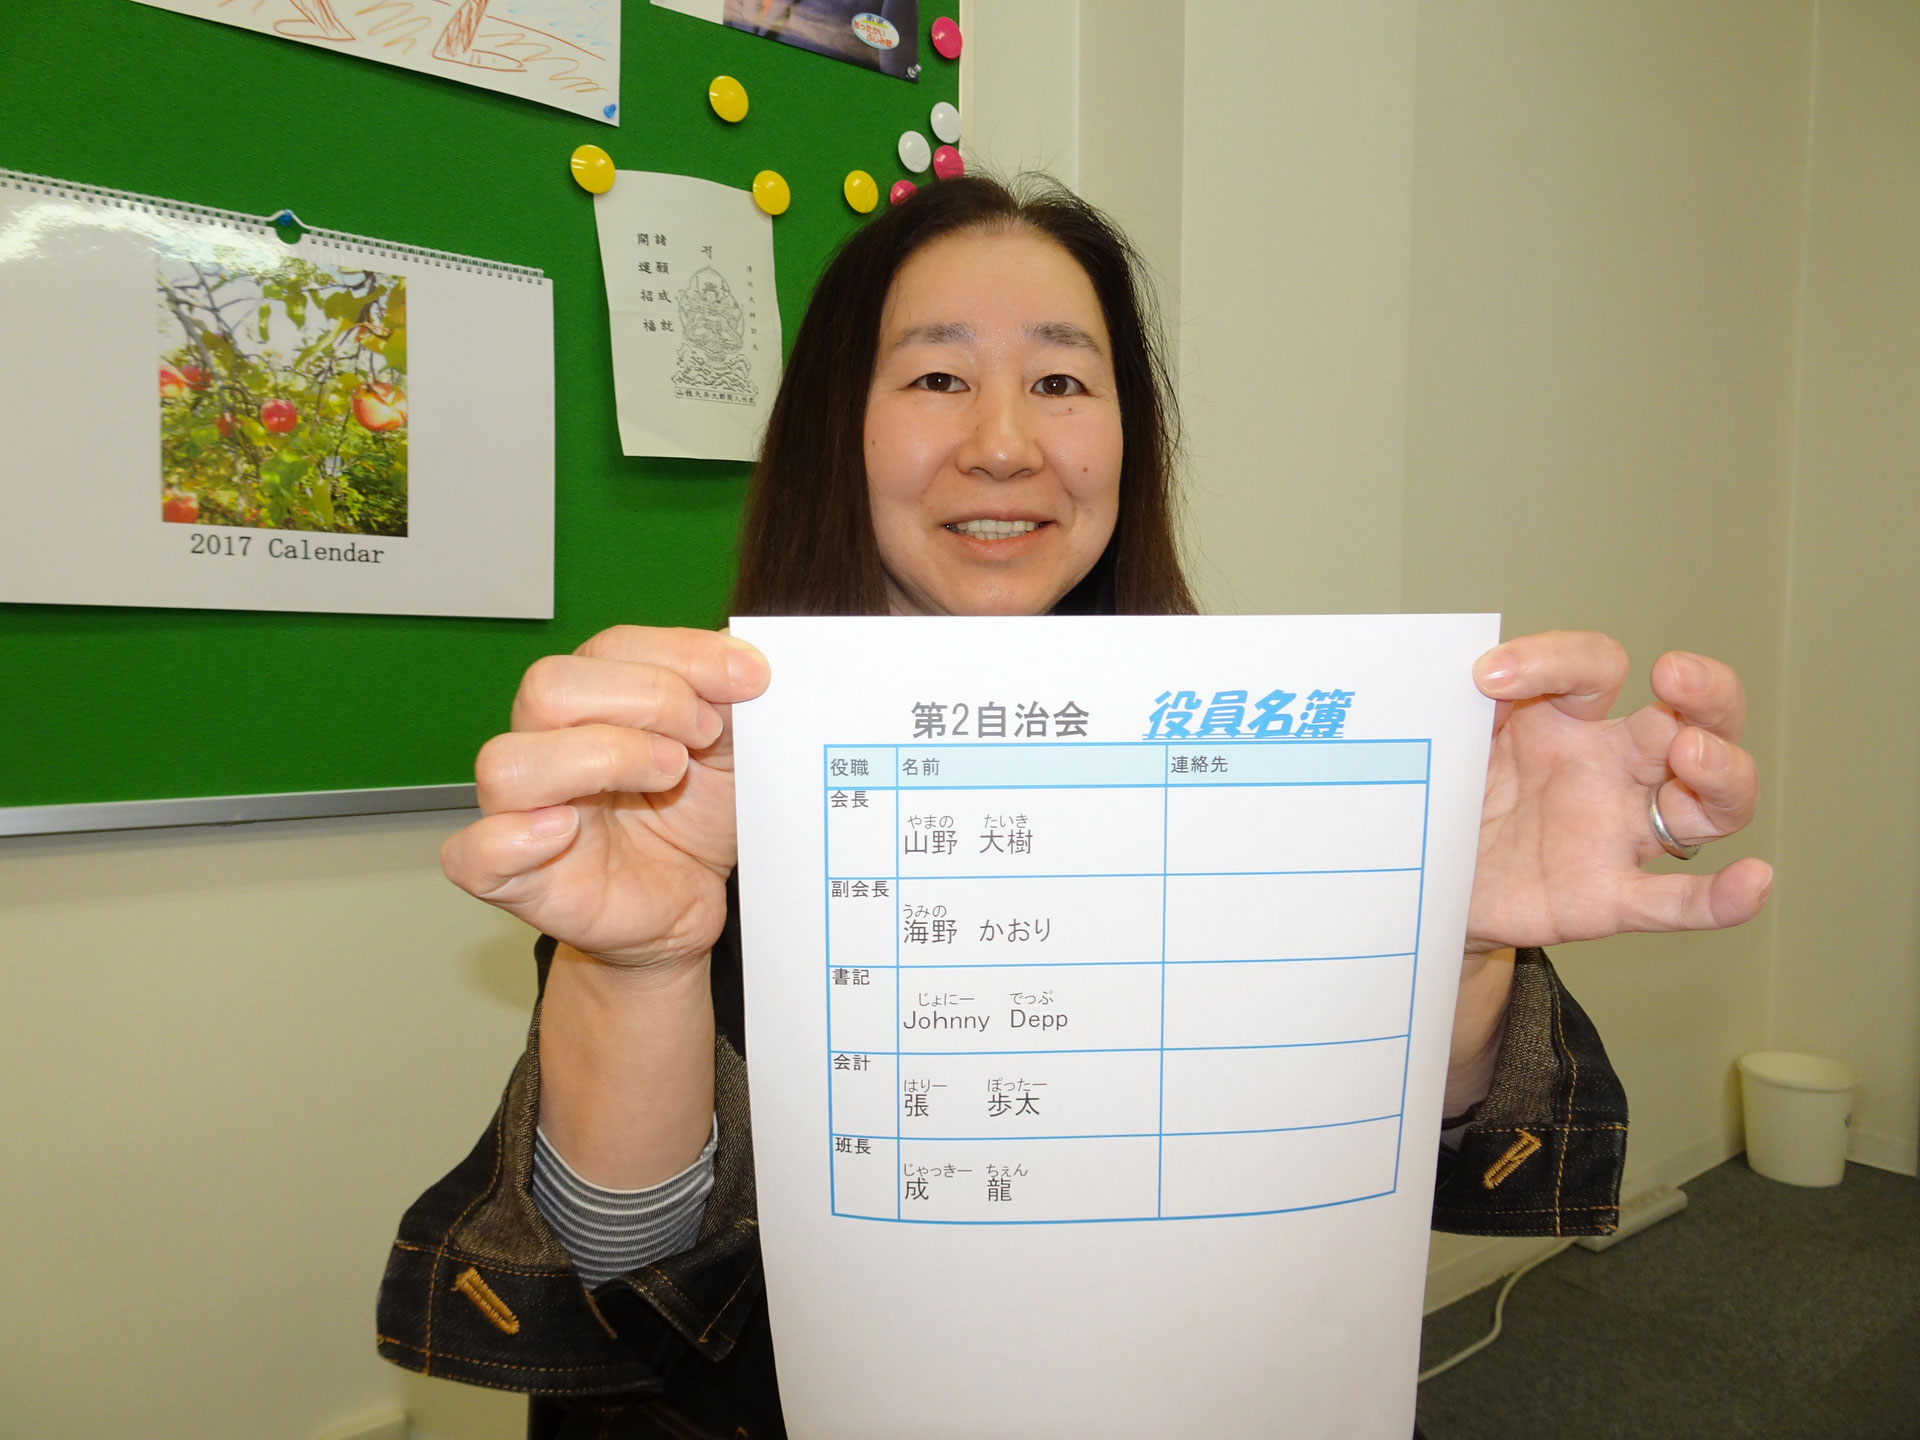 あったかい
ふじみ野
諸願成就
開運招福
2017 Calendar
第2自治会 役員名簿
役職 名前 連絡先
会長
やまの たいき
山野 大樹
副会長
うみの
海野 かおり
書記
じょにー でっぷ
Johnny Depp
会計
はりー ぽったー
張 歩太
班長
じゃっきー ちぇん
成 龍